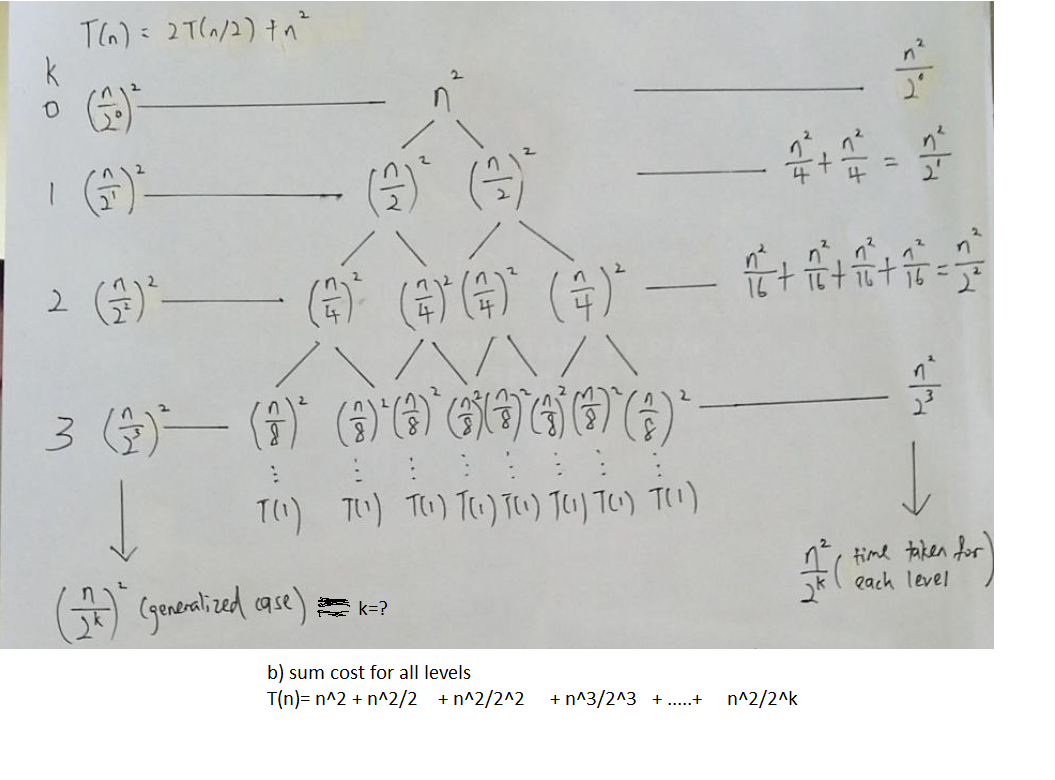 T(n) = 2T(n/2) + n²
k
0 (n/2⁰)² n² n²/2⁰
1 (n/2¹)² (n/2)² (n/2)² n²/4 + n²/4 = n²/2¹
2 (n/2²)² (n/4)² (n/4)² (n/4)² (n/4)² n²/16 + n²/16 + n²/16 + n²/16 = n²/2²
3 (n/2³)² (n/8)² (n/8)² (n/8)² (n/8)² (n/8)² (n/8)² (n/8)² (n/8)² n²/2³
⋮ ⋮ ⋮ ⋮ ⋮ ⋮ ⋮ ⋮
T(1) T(1) T(1) T(1) T(1) T(1) T(1) T(1)
(n/2ᵏ)² (generalized case) k=?
n²/2ᵏ (time taken for
each level)
b) sum cost for all levels
T(n)= n^2 + n^2/2 + n^2/2^2 + n^3/2^3 + .....+ n^2/2^k